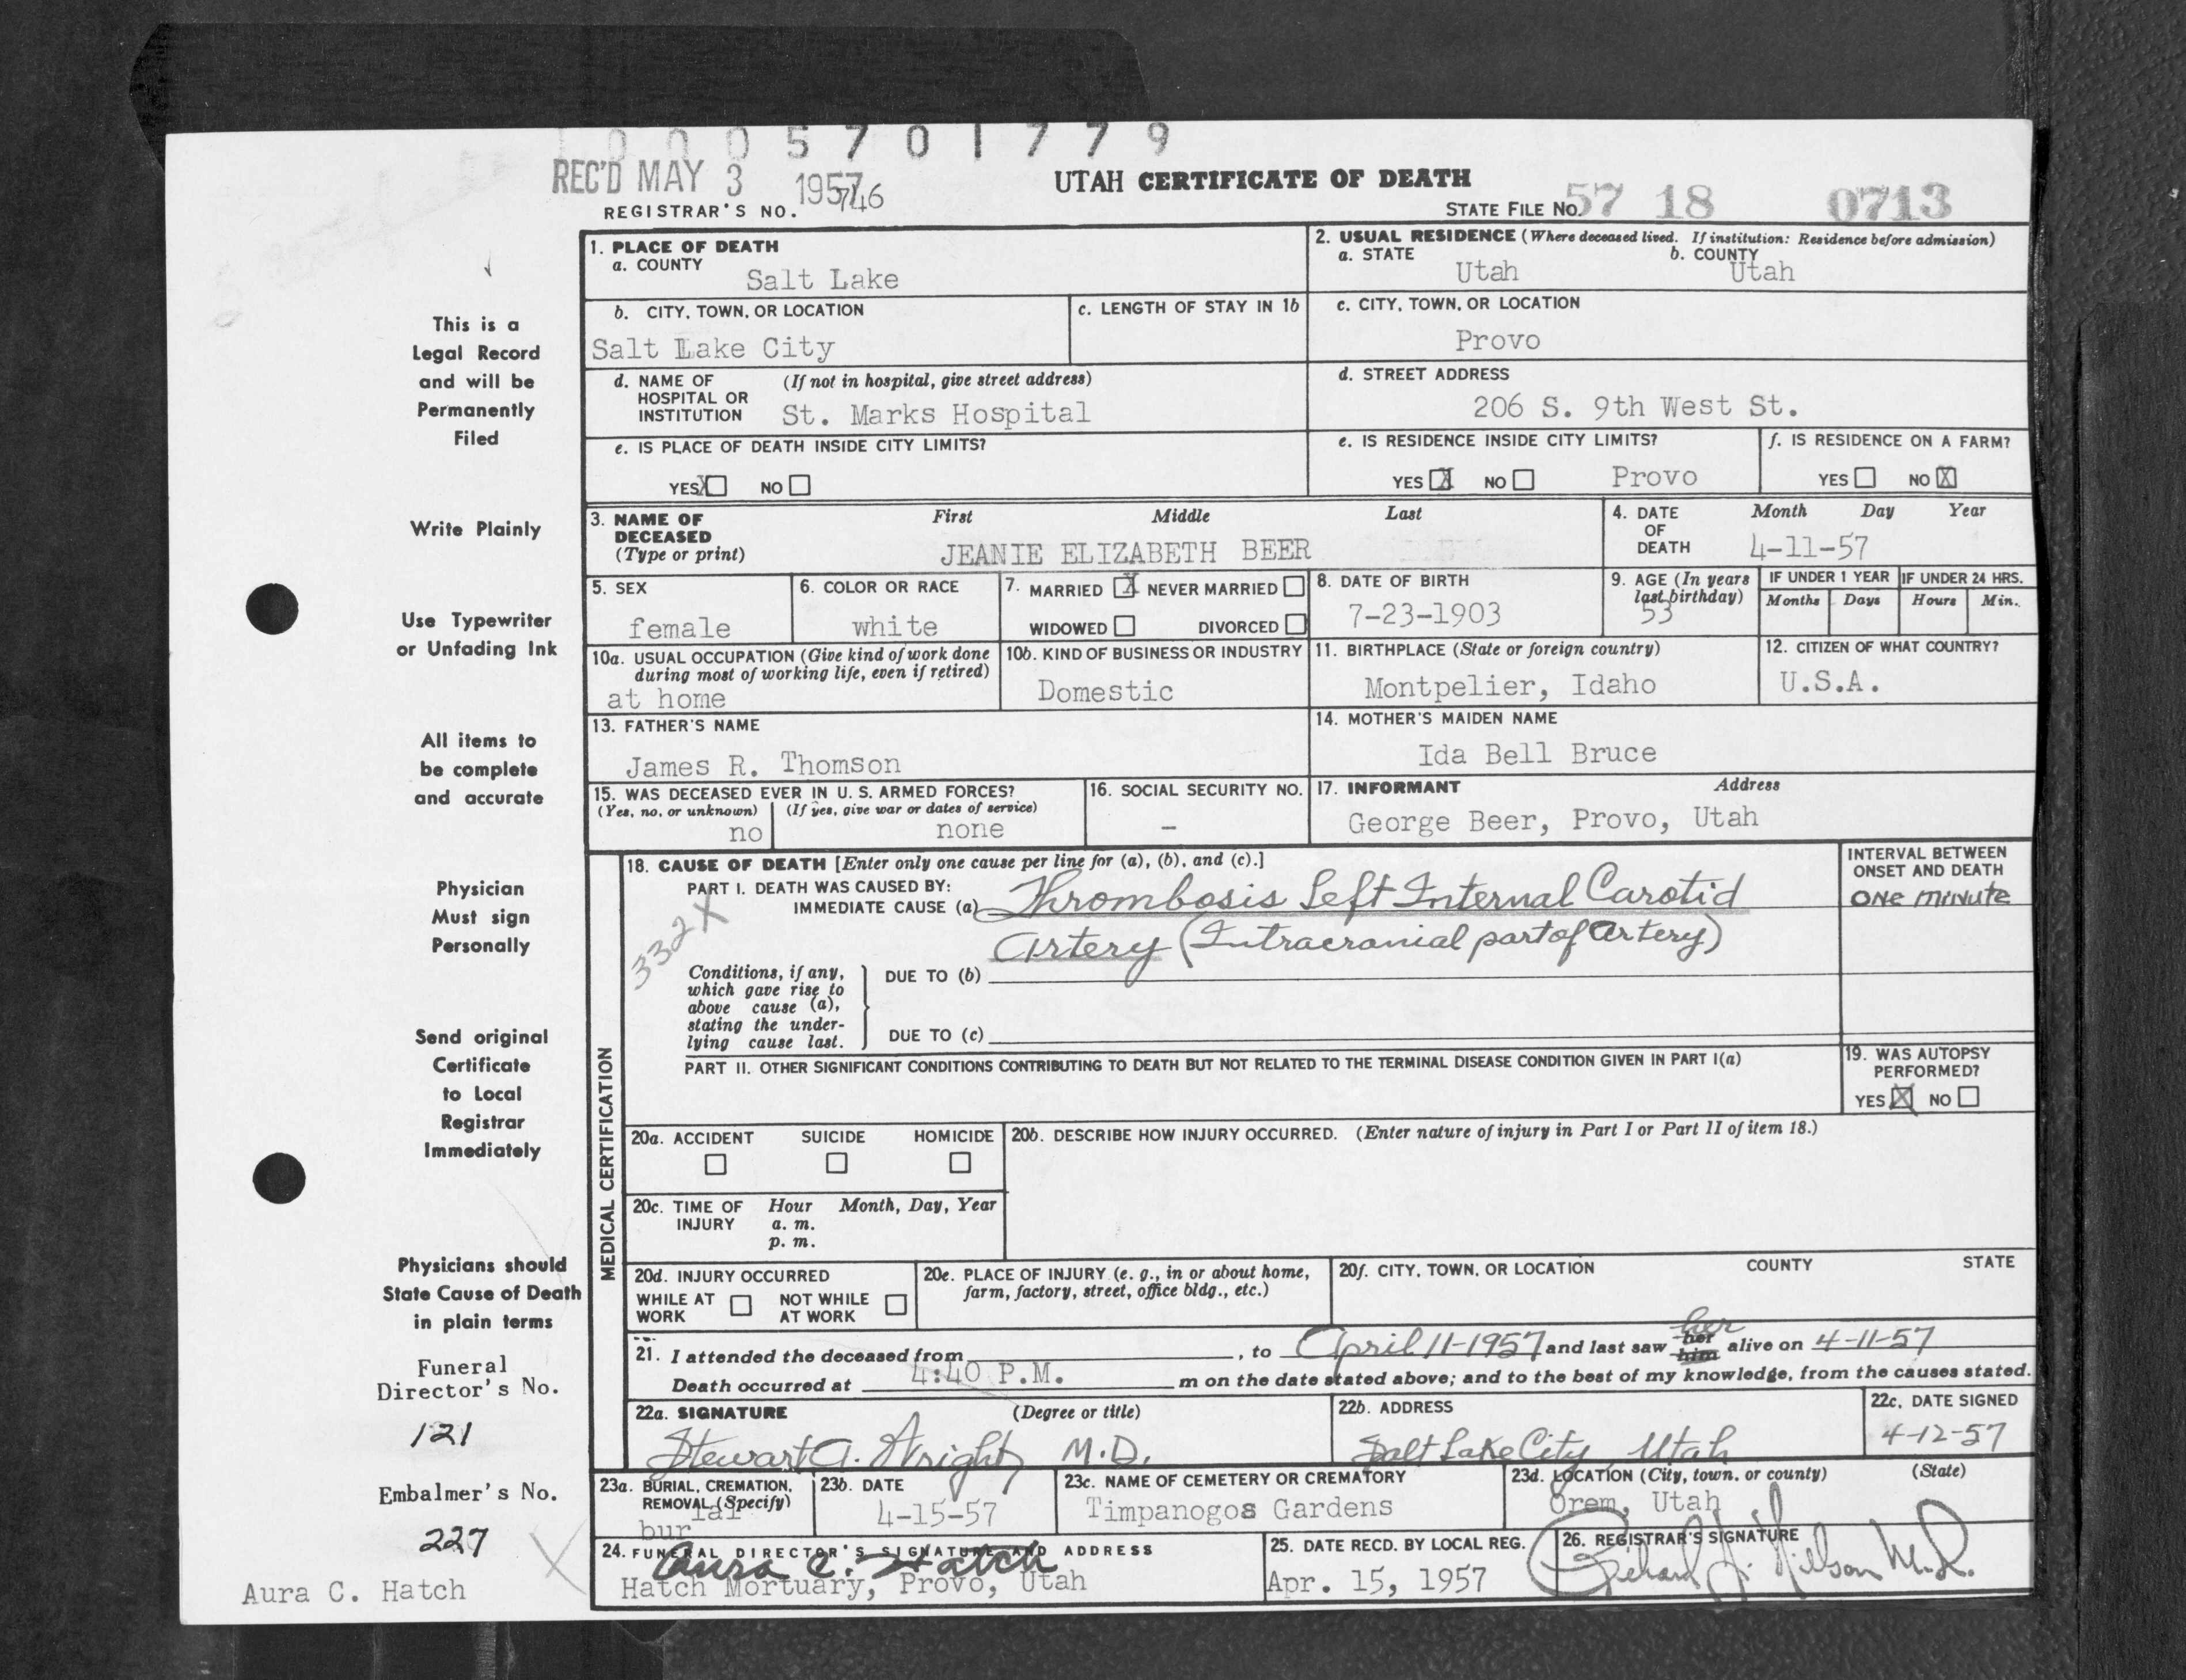 0 0 0 5 7 0 1 7 7 9
REC'D MAY 3 1957
UTAH CERTIFICATE OF DEATH
REGISTRAR'S NO. 746
STATE FILE NO. 57 18 0713
This is a
Legal Record
and will be
Permanently
Filed
Write Plainly
Use Typewriter
or Unfading Ink
All items to
be complete
and accurate
Physician
Must sign
Personally
Send original
Certificate
to Local
Registrar
Immediately
Physicians should
State Cause of Death
in plain terms
Funeral
Director's No.
121
Embalmer's No.
227
Aura C. Hatch
1. PLACE OF DEATH
a. COUNTY
Salt Lake
2. USUAL RESIDENCE (Where deceased lived. If institution: Residence before admission)
a. STATE b. COUNTY
Utah Utah
b. CITY, TOWN, OR LOCATION
Salt Lake City
c. LENGTH OF STAY IN 1b
c. CITY, TOWN, OR LOCATION
Provo
d. NAME OF (If not in hospital, give street address)
HOSPITAL OR
INSTITUTION St. Marks Hospital
d. STREET ADDRESS
206 S. 9th West St.
e. IS PLACE OF DEATH INSIDE CITY LIMITS?
YES X NO
e. IS RESIDENCE INSIDE CITY LIMITS?
YES X NO Provo
f. IS RESIDENCE ON A FARM?
YES NO X
3. NAME OF First Middle Last
DECEASED
(Type or print) JEANIE ELIZABETH BEER
4. DATE Month Day Year
OF
DEATH 4-11-57
5. SEX
female
6. COLOR OR RACE
white
7. MARRIED X NEVER MARRIED
WIDOWED DIVORCED
8. DATE OF BIRTH
7-23-1903
9. AGE (In years
last birthday)
53
IF UNDER 1 YEAR IF UNDER 24 HRS.
Months Days Hours Min.
10a. USUAL OCCUPATION (Give kind of work done
during most of working life, even if retired)
at home
10b. KIND OF BUSINESS OR INDUSTRY
Domestic
11. BIRTHPLACE (State or foreign country)
Montpelier, Idaho
12. CITIZEN OF WHAT COUNTRY?
U.S.A.
13. FATHER'S NAME
James R. Thomson
14. MOTHER'S MAIDEN NAME
Ida Bell Bruce
15. WAS DECEASED EVER IN U. S. ARMED FORCES?
(Yes, no, or unknown) (If yes, give war or dates of service)
no none
16. SOCIAL SECURITY NO.
-
17. INFORMANT Address
George Beer, Provo, Utah
MEDICAL CERTIFICATION
18. CAUSE OF DEATH [Enter only one cause per line for (a), (b), and (c).]
INTERVAL BETWEEN
ONSET AND DEATH
PART I. DEATH WAS CAUSED BY:
IMMEDIATE CAUSE (a) Thrombosis Left Internal Carotid
One minute
Artery (Intracranial part of Artery)
332X
Conditions, if any,
which gave rise to
above cause (a),
stating the under-
lying cause last.
DUE TO (b)
DUE TO (c)
PART II. OTHER SIGNIFICANT CONDITIONS CONTRIBUTING TO DEATH BUT NOT RELATED TO THE TERMINAL DISEASE CONDITION GIVEN IN PART I(a)
19. WAS AUTOPSY
PERFORMED?
YES X NO
20a. ACCIDENT SUICIDE HOMICIDE
20b. DESCRIBE HOW INJURY OCCURRED. (Enter nature of injury in Part I or Part II of item 18.)
20c. TIME OF Hour Month, Day, Year
INJURY a. m.
p. m.
20d. INJURY OCCURRED
WHILE AT NOT WHILE
WORK AT WORK
20e. PLACE OF INJURY (e. g., in or about home,
farm, factory, street, office bldg., etc.)
20f. CITY, TOWN, OR LOCATION COUNTY STATE
her
21. I attended the deceased from , to April 11-1957 and last saw her him alive on 4-11-57
Death occurred at 4:40 P.M. m on the date stated above; and to the best of my knowledge, from the causes stated.
22a. SIGNATURE (Degree or title)
Stewart A. Wright M.D.
22b. ADDRESS
Salt Lake City Utah
22c. DATE SIGNED
4-12-57
23a. BURIAL, CREMATION,
REMOVAL (Specify)
burial
23b. DATE
4-15-57
23c. NAME OF CEMETERY OR CREMATORY
Timpanogos Gardens
23d. LOCATION (City, town, or county) (State)
Orem, Utah
24. FUNERAL DIRECTOR'S SIGNATURE AND ADDRESS
Aura C. Hatch
Hatch Mortuary, Provo, Utah
25. DATE RECD. BY LOCAL REG.
Apr. 15, 1957
26. REGISTRAR'S SIGNATURE
Richard J. Nielson M.D.